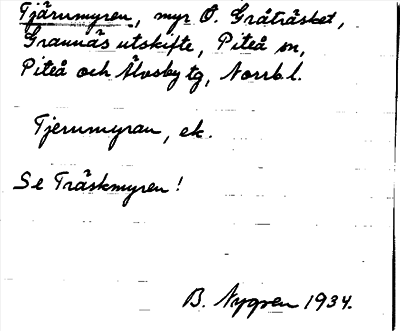 Tjärnmyren, myr Ö. Gråträsket,
Grannäs utskifte, Piteå sn,
Piteå och Älvsby tg, Norrb.l.
Tjernmyran, ek.
Se Träskmyren!
B. Nygren 1934.